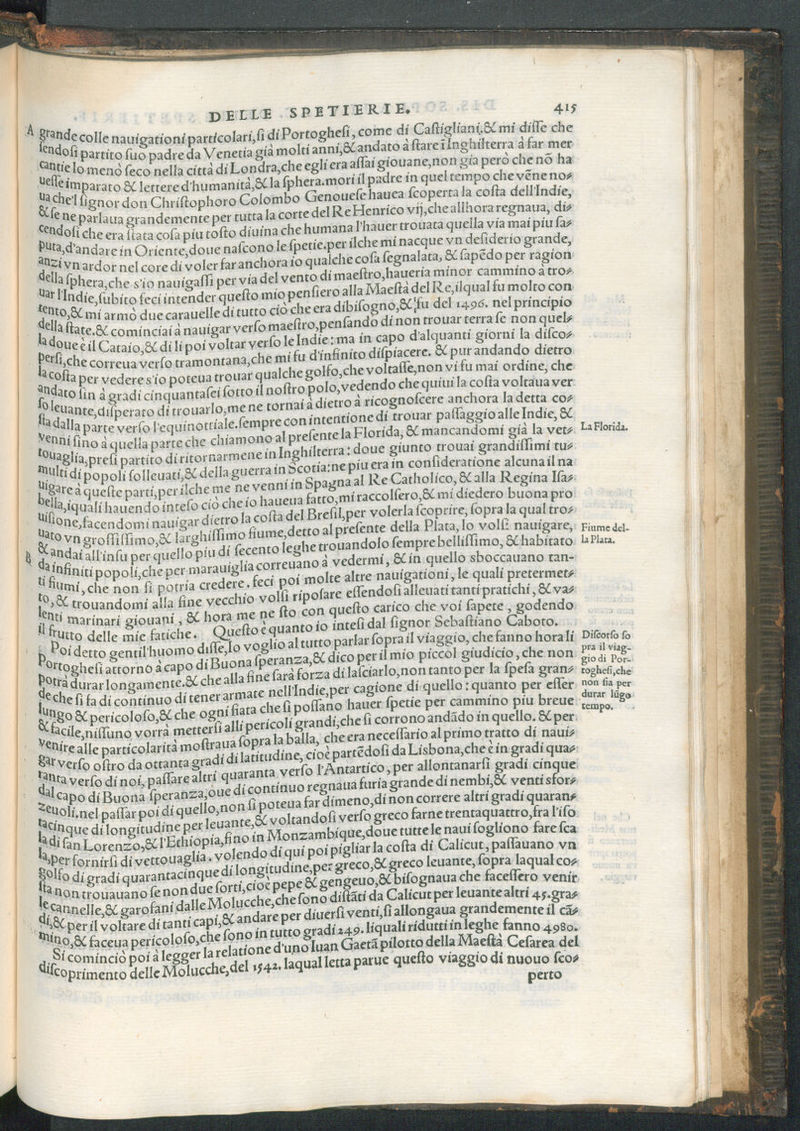 DELLE SPETIERIE. 415
A grande colle nauigationi particolari, ſi di Portogheſi, come di Caſtigliani, & mi diſſe che
ſendoſi partito ſuo padre da Venetia già molti anni, & andato à ſtare ī Inghilterra à far mer
cantie lo menò ſeco nella città di Londra, che egli era aſſai giouane, non gia però che nō ha
ueſſe imparato & lettere d'humanità, & la ſphera. mori il padre in quel tempo che vēne no⸗
ua che'l ſignor don Chriſtophoro Colombo Genoueſe hauea ſcoperta la coſta dell'Indie,
& ſe ne parlaua grandemente per tutta la corte del Re Henrico vij, che allhora regnaua, di⸗
cendoſi che era ſtata coſa piu toſto diuina che humana l'hauer trouata quella via mai piu ſa⸗
puta, d'andare in Oriente, doue naſcono le ſpetie. per ilche mi nacque vn deſiderio grande,
anzi vn ardor nel core di voler far anchora io qualche coſa ſegnalata, & ſapēdo per ragion
della ſphera, che s'io nauigaſſi per via del vento di maeſtro, haueria minor cammino à tro⸗
uar l'Indie, ſubito feci intender queſto mio penſiero alla Maeſtà del Re, ilqual fu molto con
tento, & mi armò due carauelle di tutto ciò che era dibiſogno, & fu del 1496. nel principio
della ſtate. & cominciai à nauigar verſo maeſtro, penſando di non trouar terra ſe non quel⸗
la doue è il Cataio, & di li poi voltar verſo le Indie: ma in capo d'alquanti giorni la diſco⸗
perſi, che correua verſo tramontana, che mi fu d'infinito diſpiacere. & pur andando dietro
la coſta per vedere s'io poteua trouar qualche golfo, che voltaſſe, non vi fu mai ordine, che
andato ſin à gradi cinquantaſei ſotto il noſtro polo, vedendo che quiui la coſta voltaua ver
ſo leuante, diſperato di trouarlo, me ne tornai à dietro à ricognoſcere anchora la detta co⸗
ſta dalla parte verſo l'equinottiale. ſempre con intentione di trouar paſſaggio alle Indie, &
venni ſino à quella parte che chiamono al preſente la Florida, & mancandomi già la vet⸗ La Florida.
touaglia, preſi partito di ritornarmene in Inghilterra: doue giunto trouai grandiſſimi tu⸗
multi di popoli ſolleuati, & della guerra in Scotia: ne piu era in conſideratione alcuna il na
uigare à queſte parti, per ilche me ne venni in Spagna al Re Catholico, & alla Regina Iſa⸗
bella, iquali hauendo inteſo ciò che io haueua fatto, mi raccolſero, & mi diedero buona pro
uiſione, facendomi nauigar dietro la coſta del Breſil, per volerla ſcoprire, ſopra la qual tro⸗
uato vn groſſiſſimo, & larghiſſimo fiume, detto al preſente della Plata, lo volſi nauigare, Fiume del-
& andai all'inſu per quello piu di ſecento leghe trouandolo ſempre belliſſimo, & habitato la Plata.
B da infiniti popoli, che per marauiglia correuano à vedermi, & in quello sboccauano tan-
ti fiumi, che non ſi potria credere. feci poi molte altre nauigationi, le quali pretermet⸗
to, & trouandomi alla fine vecchio volſi ripoſare eſſendoſi alleuati tanti pratichi, & va⸗
lenti marinari giouani, & hora me ne ſto con queſto carico che voi ſapete, godendo
il frutto delle mie fatiche. Queſto è quanto io inteſi dal ſignor Sebaſtiano Caboto.
Poi detto gentil'huomo diſſe, lo voglio al tutto parlar ſopra il viaggio, che fanno hora li Diſcorſo ſo
Portogheſi attorno à capo di Buona ſperanza, & dico per il mio piccol giudicio, che non pra il viag-
potrà durar longamente. & che alla fine ſarà forza di laſciarlo, non tanto per la ſpeſa gran⸗ gio di Por-
de che ſi fa di continuo di tener armate nell'Indie, per cagione di quello: quanto per eſſer togheſi, che
lungo & pericoloſo, & che ogni fiata che ſi poſſano hauer ſpetie per cammino piu breue non ſia per
& facile, niſſuno vorrà metterſi alli pericoli grandi, che ſi corrono andādo in quello. & per durar lūgo
venire alle particolarità moſtraua ſopra la balla, che era neceſſario al primo tratto di naui⸗ tempo.
gar verſo oſtro da ottanta gradi di latitudine, cioè partēdoſi da Lisbona, che è in gradi qua⸗
ranta verſo di noi, paſſare altri quaranta verſo l'Antartico, per allontanarſi gradi cinque
dal capo di Buona ſperanza, oue di continuo regnaua furia grande di nembi, & venti sfor⸗
zeuoli, nel paſſar poi di quello, non ſi poteua far dimeno, di non correre altri gradi quaran⸗
tacinque di longitudine per leuante, & voltandoſi verſo greco farne trentaquattro, fra l'iſo
la di ſan Lorenzo, & l'Ethiopia, fino in Monzambique, doue tutte le naui ſogliono fare ſca
la, per fornirſi di vettouaglia. volendo di qui poi pigliar la coſta di Calicut, paſſauano vn
golfo di gradi quarantacinque di longitudine, per greco, & greco leuante, ſopra laqual co⸗
ſta non trouauano ſe non due ſorti, cioè pepe & gengeuo, & biſognaua che faceſſero venir
le cannelle, & garofani dalle Molucche, che ſono diſtāti da Calicut per leuante altri 45. gra⸗
di, & per il voltare di tanti capi, & andare per diuerſi venti, ſi allongaua grandemente il cā⸗
mino, & faceua pericoloſo, che ſono in tutto gradi 249. liquali ridutti in leghe fanno 4980.
Si cominciò poi à legger la relatione d'uno Iuan Gaetā pilotto della Maeſtà Ceſarea del
diſcoprimento delle Molucche, del 1542. laqual letta parue queſto viaggio di nuouo ſco⸗
perto